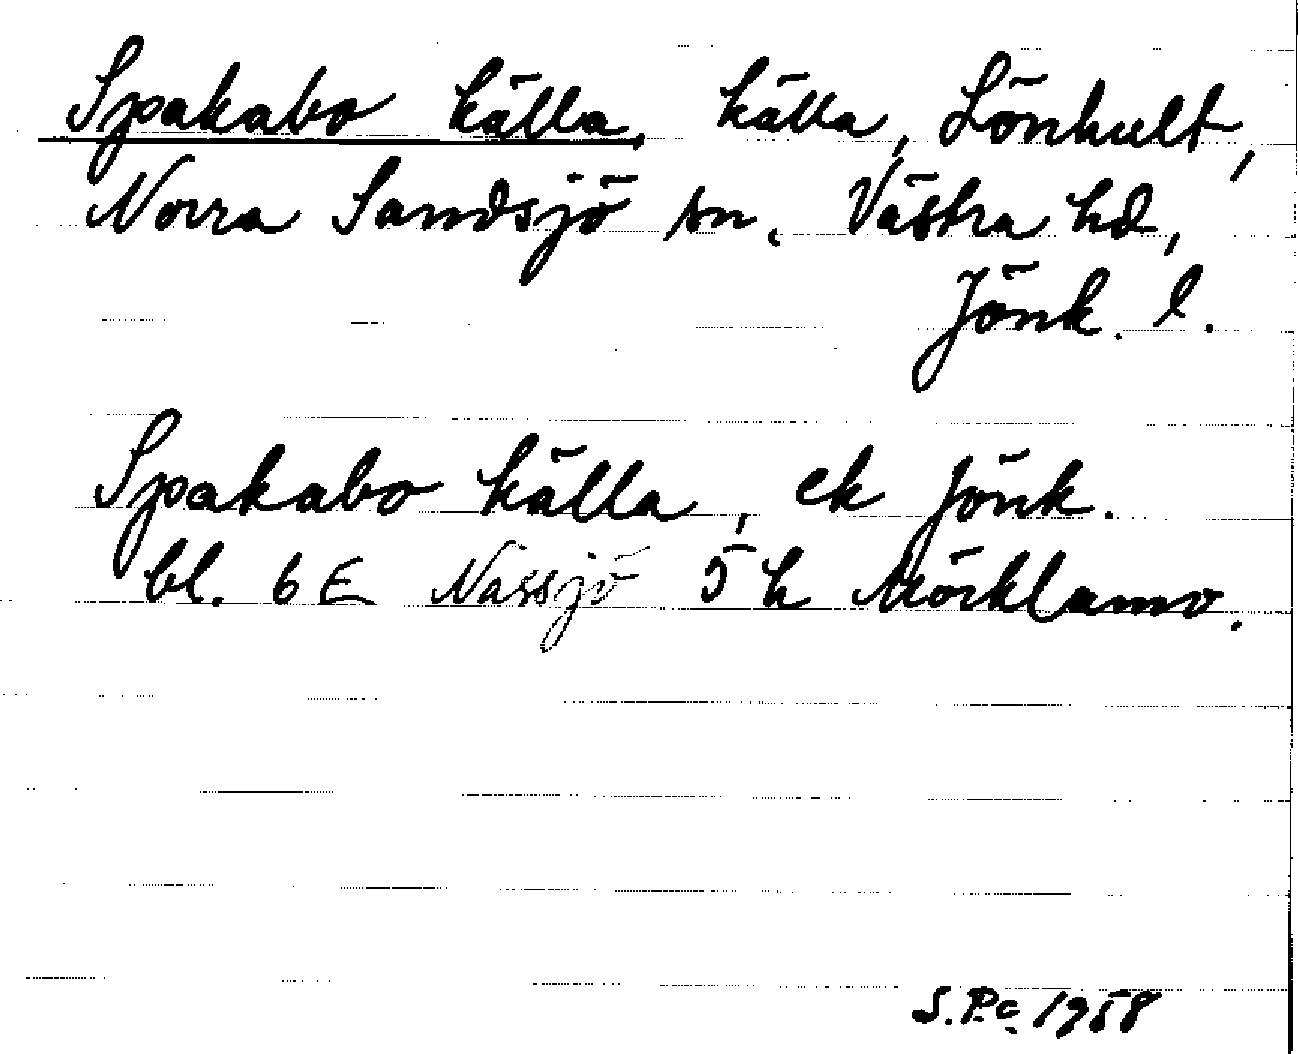 Spakabo källa, källa, Lönhult,
Norra Sandsjö sn. Västra hd,
Jönk. l.
Spakabo källa, ek Jönk.
bl. 6 E Nässjö 5 h Mörklamo.
S.Pc. 1958